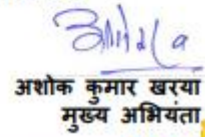 अशोक कुमार खरया
मुख्य अभियंता